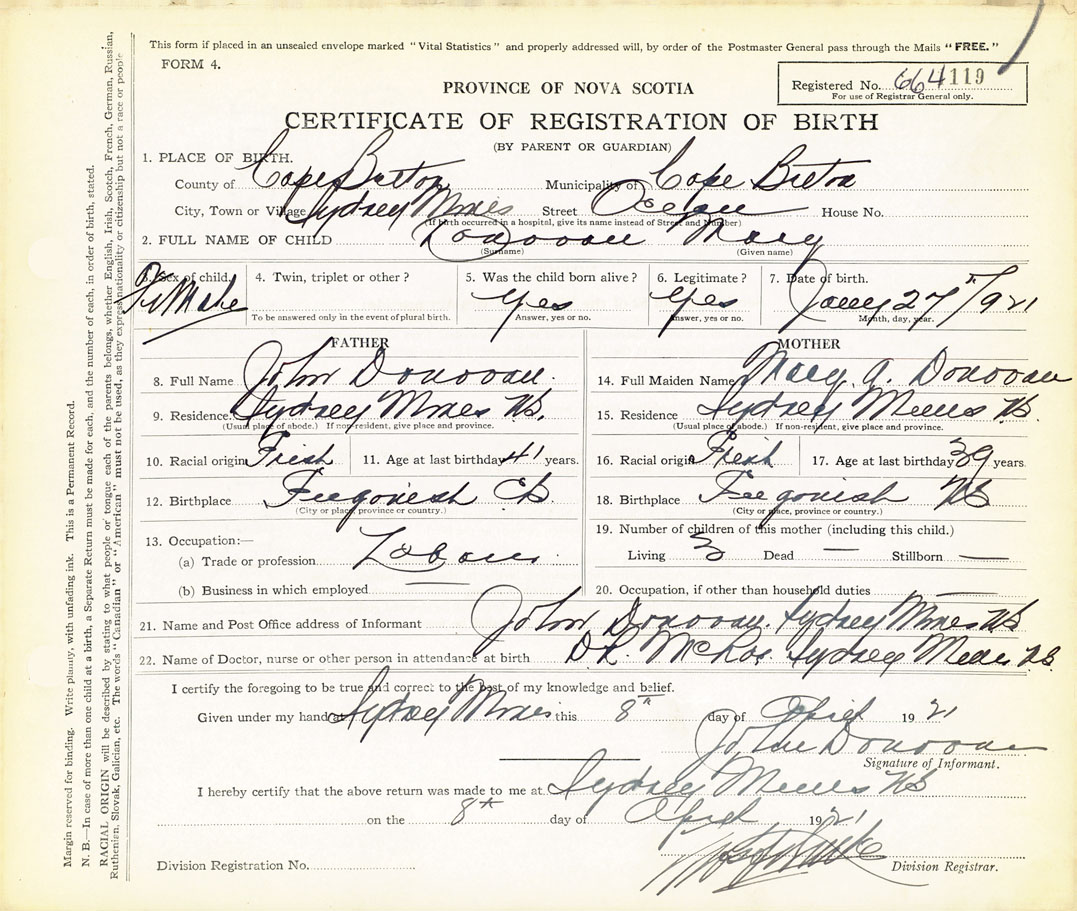 This form if placed in an unsealed envelope marked "Vital Statistics" and properly addressed will, by order of the Postmaster General pass through the Mails "FREE."
FORM 4.
Registered No. 664119
For use of Registrar General only.
PROVINCE OF NOVA SCOTIA
CERTIFICATE OF REGISTRATION OF BIRTH
(BY PARENT OR GUARDIAN)
1. PLACE OF BIRTH.
County of Cape Breton Municipality of Cape Breton
City, Town or Village Sydney Mines Street Ocean House No.
(If birth occurred in a hospital, give its name instead of Street and Number)
2. FULL NAME OF CHILD Donovan Mary
(Surname) (Given name)
3. Sex of child. 4. Twin, triplet or other? 5. Was the child born alive? 6. Legitimate? 7. Date of birth.
Yes Yes 27 1921
To be answered only in the event of plural birth. Answer, yes or no. Answer, yes or no. Month, day, year.
FATHER MOTHER
8. Full Name John Donovan 14. Full Maiden Name Mary A. Donovan
9. Residence. Sydney Mines N.S. 15. Residence Sydney Mines NS
(Usual place of abode.) If non-resident, give place and province. (Usual place of abode.) If non-resident, give place and province.
10. Racial origin Irish 11. Age at last birthday 41 years. 16. Racial origin Irish 17. Age at last birthday 39 years.
12. Birthplace Ingonish CB 18. Birthplace Ingonish NS
(City or place, province or country.) (City or place, province or country.)
13. Occupation:— 19. Number of children of this mother (including this child.)
(a) Trade or profession Living 3 Dead — Stillborn —
(b) Business in which employed — 20. Occupation, if other than household duties —
21. Name and Post Office address of Informant John Donovan. Sydney Mines NS
22. Name of Doctor, nurse or other person in attendance at birth Dr. Sydney Mines N.S.
I certify the foregoing to be true and correct to the best of my knowledge and belief.
Given under my hand at Sydney Mines this 8th day of April 1921
John Donovan
Signature of Informant.
I hereby certify that the above return was made to me at Sydney Mines NS
on the 8th day of April 1921
Division Registration No. Division Registrar.
Margin reserved for binding. Write plainly, with unfading ink. This is a Permanent Record.
N. B.—In case of more than one child at a birth, a Separate Return must be made for each, and the number of each, in order of birth, stated.
RACIAL ORIGIN will be described by stating to what people or tongue each of the parents belongs, whether English, Irish, Scotch, French, German, Russian,
Ruthenian, Slovak, Galician, etc. The words "Canadian" or "American" must not be used, as they express nationality or citizenship but not a race or people